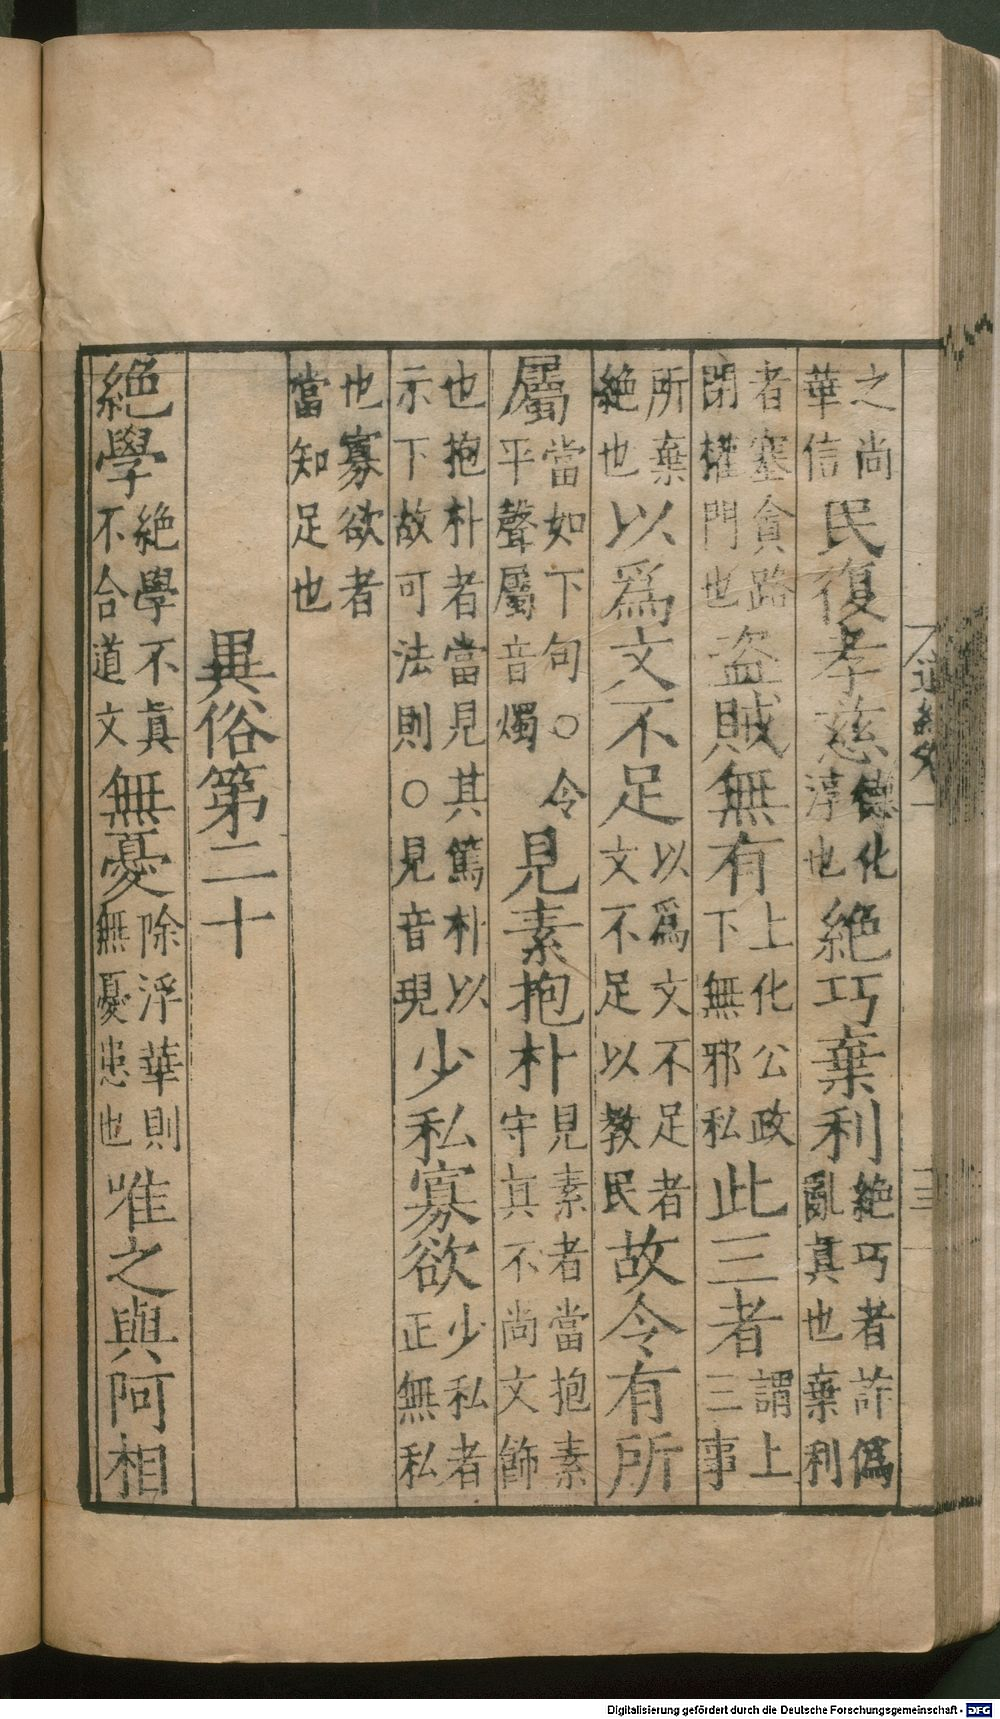 之尚華信民復孝慈德化淳也絶巧棄利絶巧者詐僞亂真也棄利
者塞貪路閉權門也盗賊無有上化公政下無邪私此三者謂上三事
所棄絶也以爲文不足以爲文不足者文不足以教民故令有所
屬當如下句○令平聲屬音燭見素抱朴見素者當抱素守真不尚文飾
也抱朴者當見其篤朴以示下故可法則○見音現少私寡欲少私者正無私
也寡欲者當知足也
異俗第二十
絶學絶學不眞不合道文無憂除浮華則無憂患也唯之與阿相
Digitalisierung gefördert durch die Deutsche Forschungsgemeinschaft - DFG